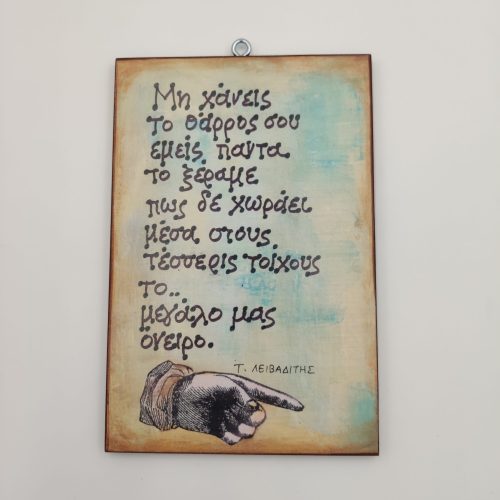 Μη χάνεις
το θάρρος σου
εμείς πάντα
το ξέραμε
πως δε χωράει
μέσα στους
τέσσερις τοίχους
το..
μεγάλο μας
όνειρο.
Τ. ΛΕΙΒΑΔΙΤΗΣ